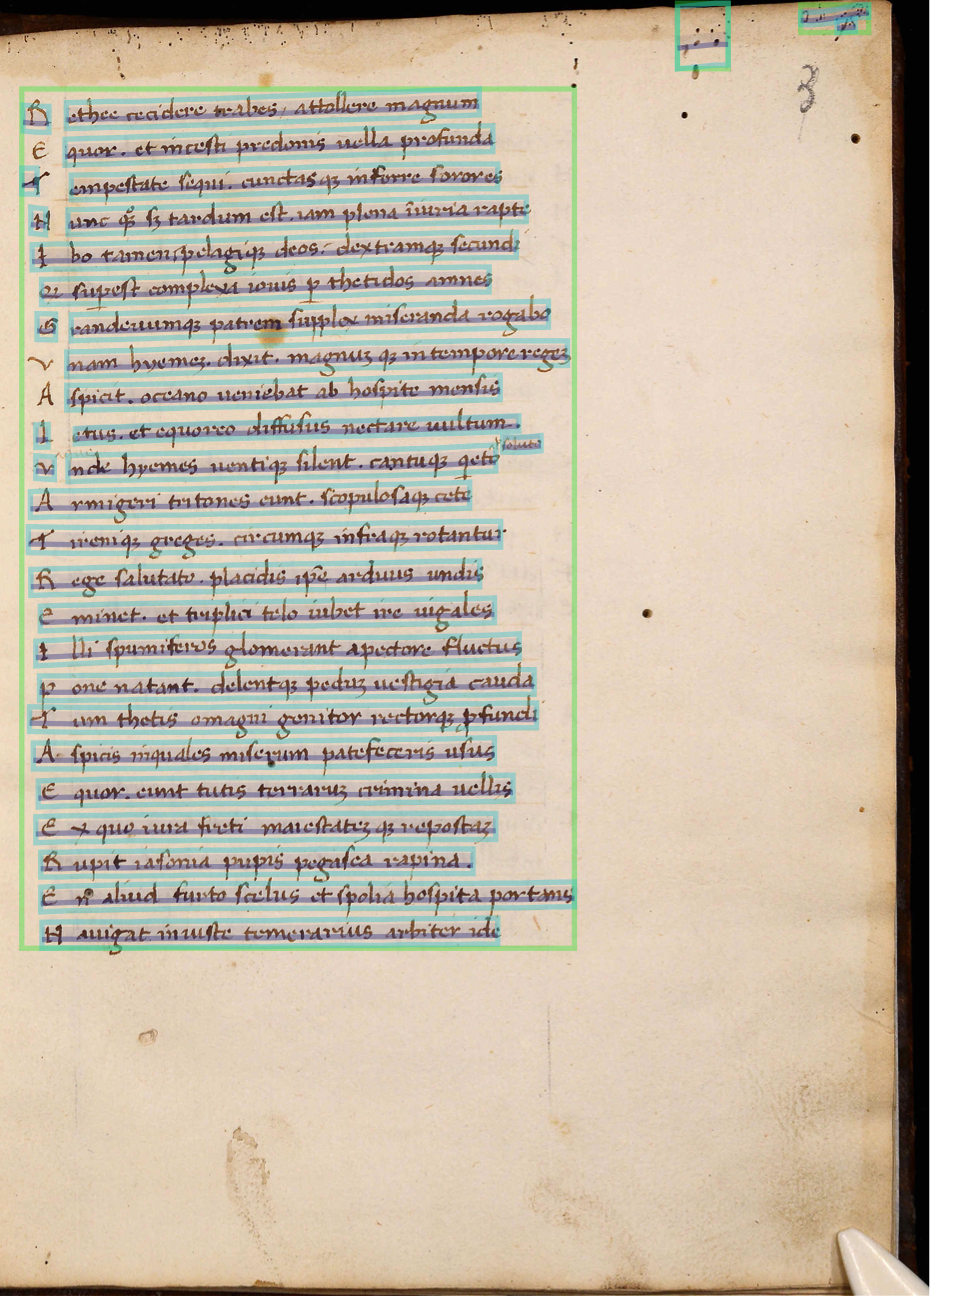 R ethee cecidere trabes, attollere magnum
E quor. et incesti predonis uella profunda
T empestate sequi. cunctasqꝫ inferre sorores
N unc qͦꝫ sꝫ tardum est. iam plena īiuria rapte
I bo tamen, pelagiqꝫ deos. dextramqꝫ secundi
Q superest complexi iouis ꝑ thetidos amnes
G randeuumqꝫ patrem supplex miseranda rogabo
V nam hyemeꝫ. dixit. magnuꝫ qꝫ in tempore regeꝫ
A spicit. oceano ueniebat ab hospite mensis
L etus. et equoreo diffusus nectare uultum.
V nde hyemes uentiqꝫ silent. cantuqꝫ qeto soluto
A rmigeri tritones eunt. scopulosaqꝫ cete
T ireniqꝫ greges. circumqꝫ infraqꝫ rotantur
R ege salutato. placidis ip̄e arduus undis
E minet. et triplici telo iubet ire uigales
I lli spumiferos glomerant apectore fluctus
P one natant. delentqꝫ peduꝫ uestigia cauda
T um thetis omagni genitor rectorqꝫ ꝓfundi
A spicis inquales miserum patefeceris usus
E quor. eunt tutis terraruꝫ crimina uellis
E x quo iura freti maiestateꝫ qꝫ repostaꝫ
R upit iasonia pupis pegasea rapina.
E n͂ aliud furto scelus et spolia hospita portans
N auigat iniuste temerarius arbiter ide
3